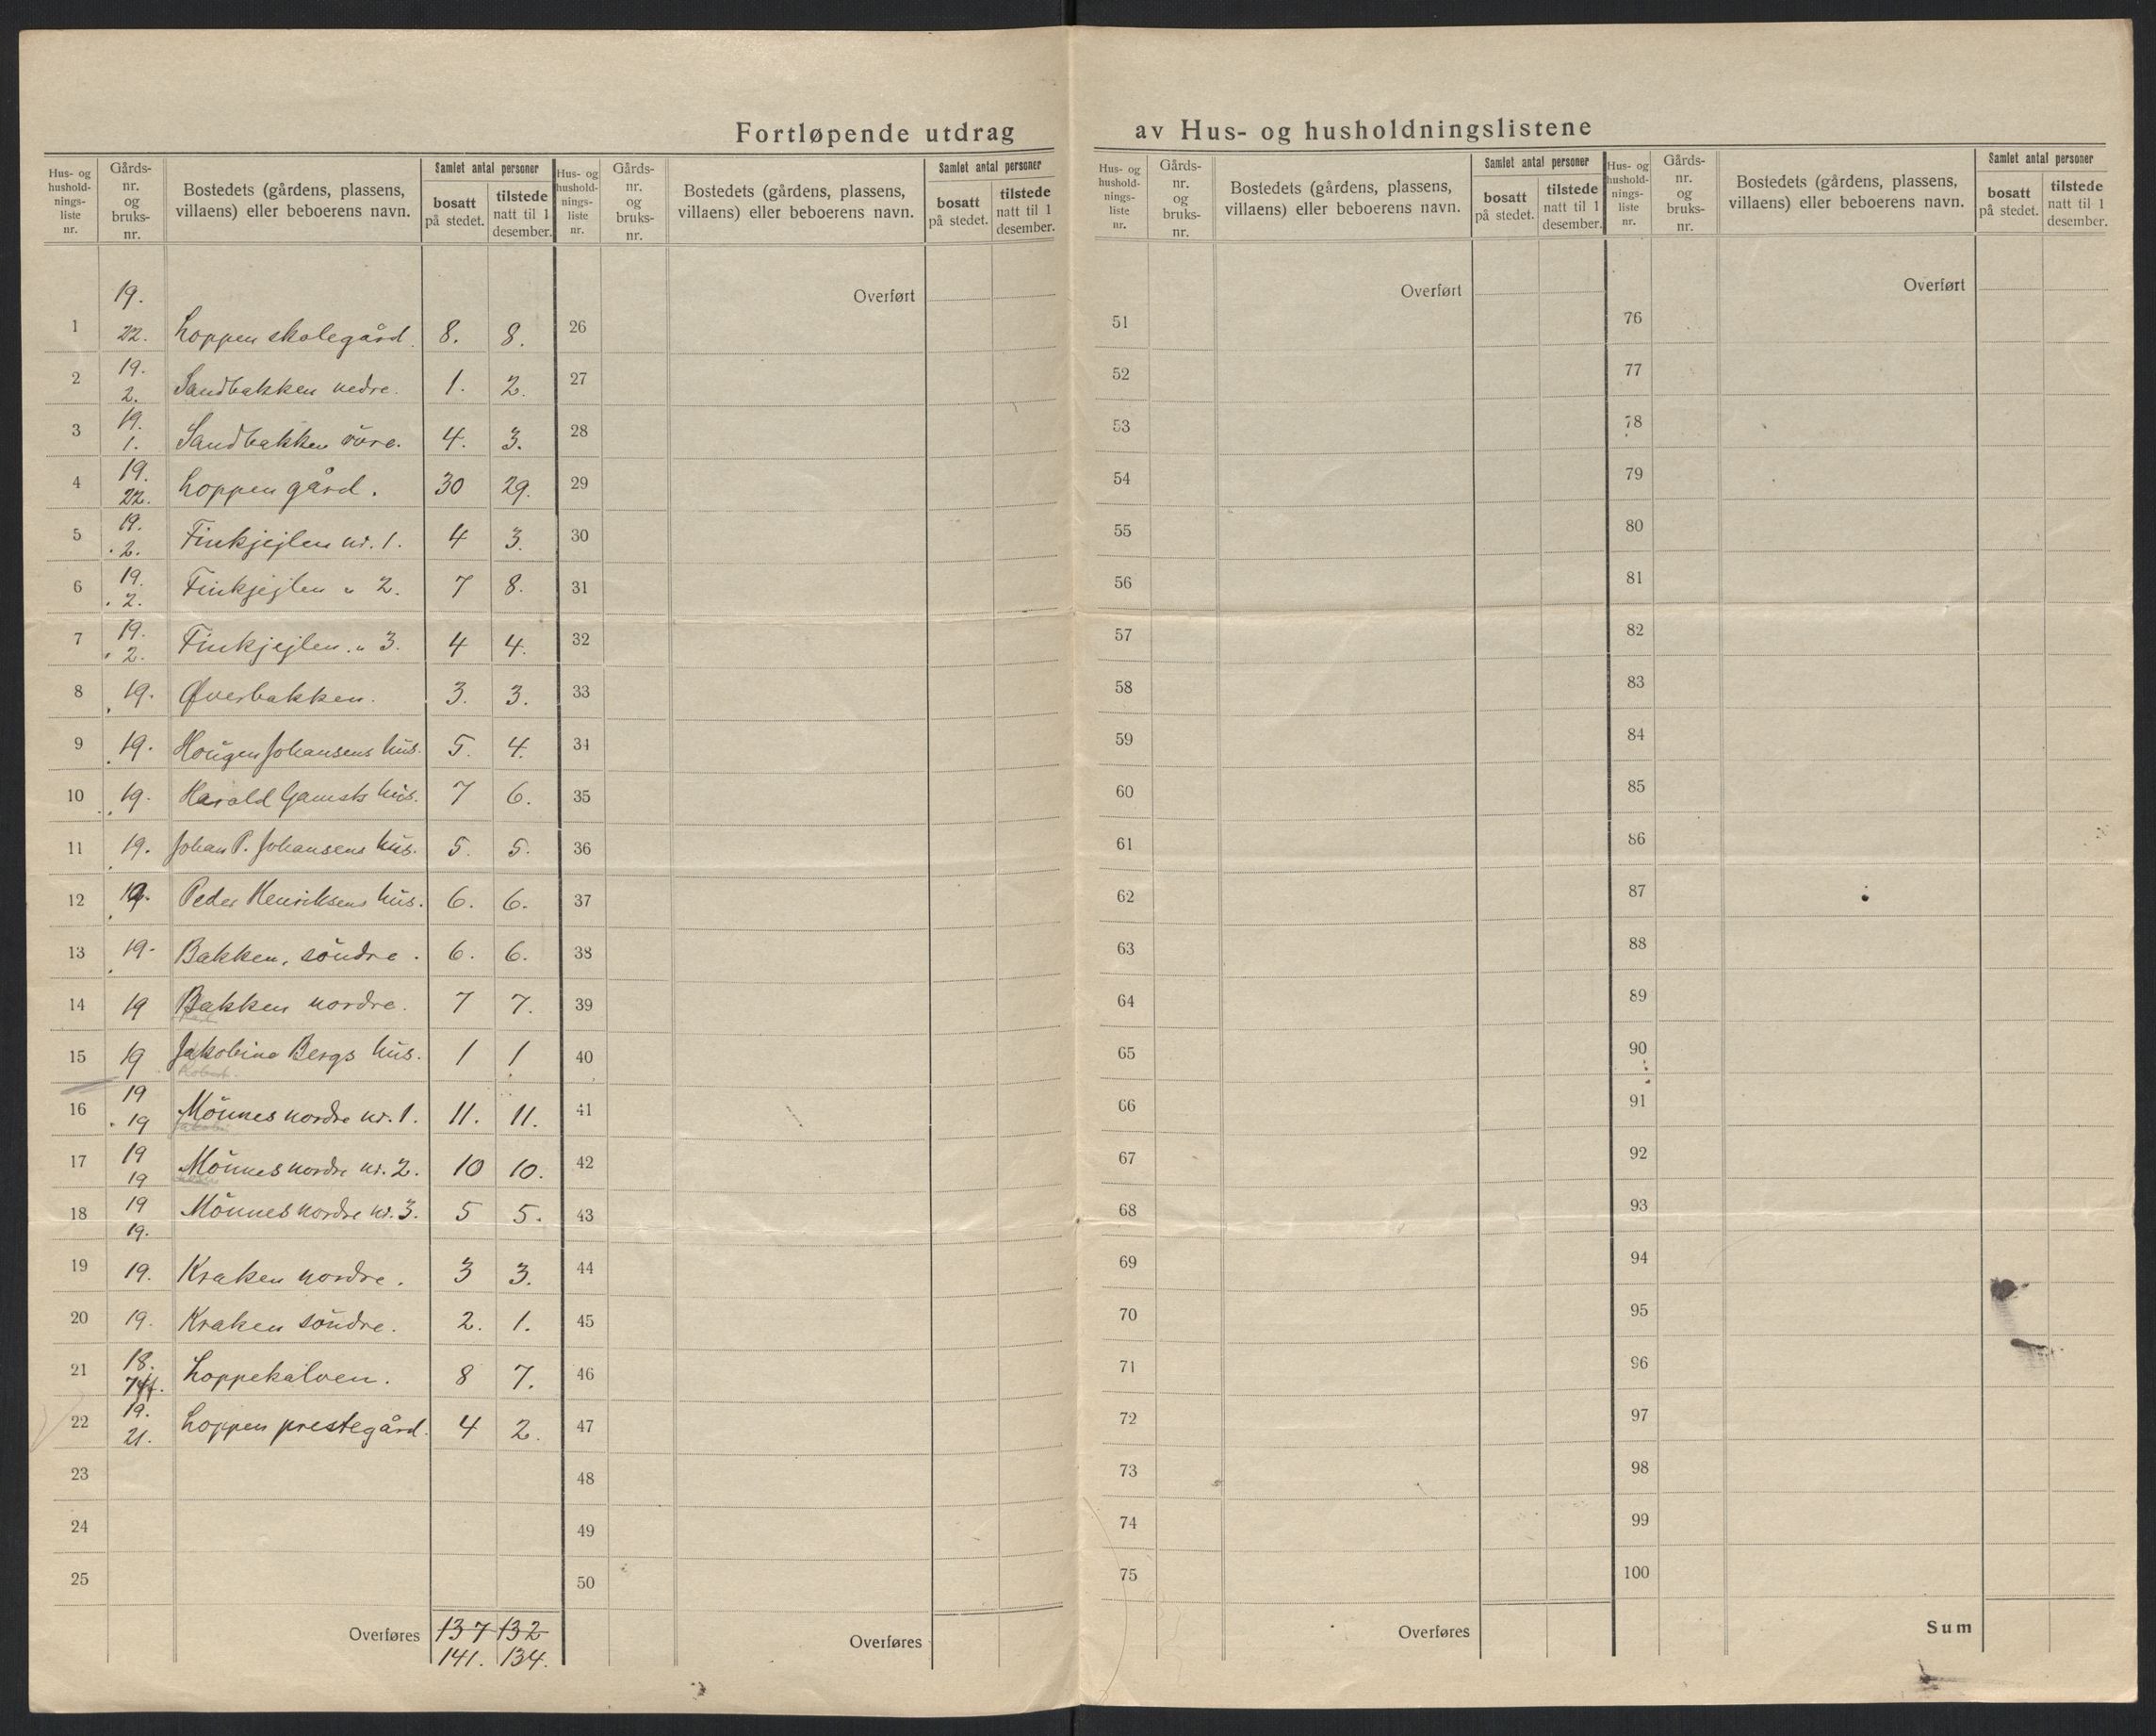 Fortløpende utdrag av Hus- og husholdningslistene
Hus- og hushold-nings-liste nr. | Gårds-nr. og bruks-nr. | Bostedets (gårdens, plassens, villaens) eller beboerens navn. | Samlet antal personer | bosatt på stedet. | tilstede natt til 1 desember.
1 | 19. 22. | Loppen skolegård. | 8. | 8.
2 | 19. 2. | Sandbakken nedre. | 1. | 2.
3 | 19. 1. | Sandbakken övre. | 4. | 3.
4 | 19. 22. | Loppen gård. | 30 | 29.
5 | 19. 2. | Finkjejlen nr. 1. | 4 | 3.
6 | 19. 2. | Finkjejlen " 2. | 7 | 8.
7 | 19. 2. | Finkjejlen. " 3. | 4 | 4.
8 | 19. | Øverbakken. | 3. | 3.
9 | 19. | Hougen Johansens hus. | 5. | 4.
10 | 19. | Harald Gamsts hus. | 7 | 6.
11 | 19. | Johan P. Johansens hus. | 5. | 5.
12 | 19. | Peder Henriksens hus. | 6. | 6.
13 | 19. | Bakken, söndre. | 6. | 6.
14 | 19 | Bakken nordre. | 7 | 7.
15 | 19 | Jakobine Bergs hus. | 1 | 1
16 | 19 19 | Mönnes nordre nr. 1. | 11. | 11.
17 | 19 19 | Mönnes nordre nr. 2. | 10 | 10.
18 | 19 19. | Mönnes nordre nr. 3. | 5 | 5.
19 | 19. | Kraken nordre. | 3 | 3.
20 | 19. | Kraken söndre. | 2. | 1.
21 | 18. | Loppekalven. | 8 | 7.
22 | 19. 21. | Loppen prestegård. | 4 | 2.
23
24
25
Overføres | 137 | 132
141. | 134.
Hus- og hushold-nings-liste nr. | Gårds-nr. og bruks-nr. | Bostedets (gårdens, plassens, villaens) eller beboerens navn. | Samlet antal personer | bosatt på stedet. | tilstede natt til 1 desember.
Overført
26
27
28
29
30
31
32
33
34
35
36
37
38
39
40
41
42
43
44
45
46
47
48
49
50
Overføres
Hus- og hushold-nings-liste nr. | Gårds-nr. og bruks-nr. | Bostedets (gårdens, plassens, villaens) eller beboerens navn. | Samlet antal personer | bosatt på stedet. | tilstede natt til 1 desember.
Overført
51
52
53
54
55
56
57
58
59
60
61
62
63
64
65
66
67
68
69
70
71
72
73
74
75
Overføres
Hus- og hushold-nings-liste nr. | Gårds-nr. og bruks-nr. | Bostedets (gårdens, plassens, villaens) eller beboerens navn. | Samlet antal personer | bosatt på stedet. | tilstede natt til 1 desember.
Overført
76
77
78
79
80
81
82
83
84
85
86
87
88
89
90
91
92
93
94
95
96
97
98
99
100
Sum